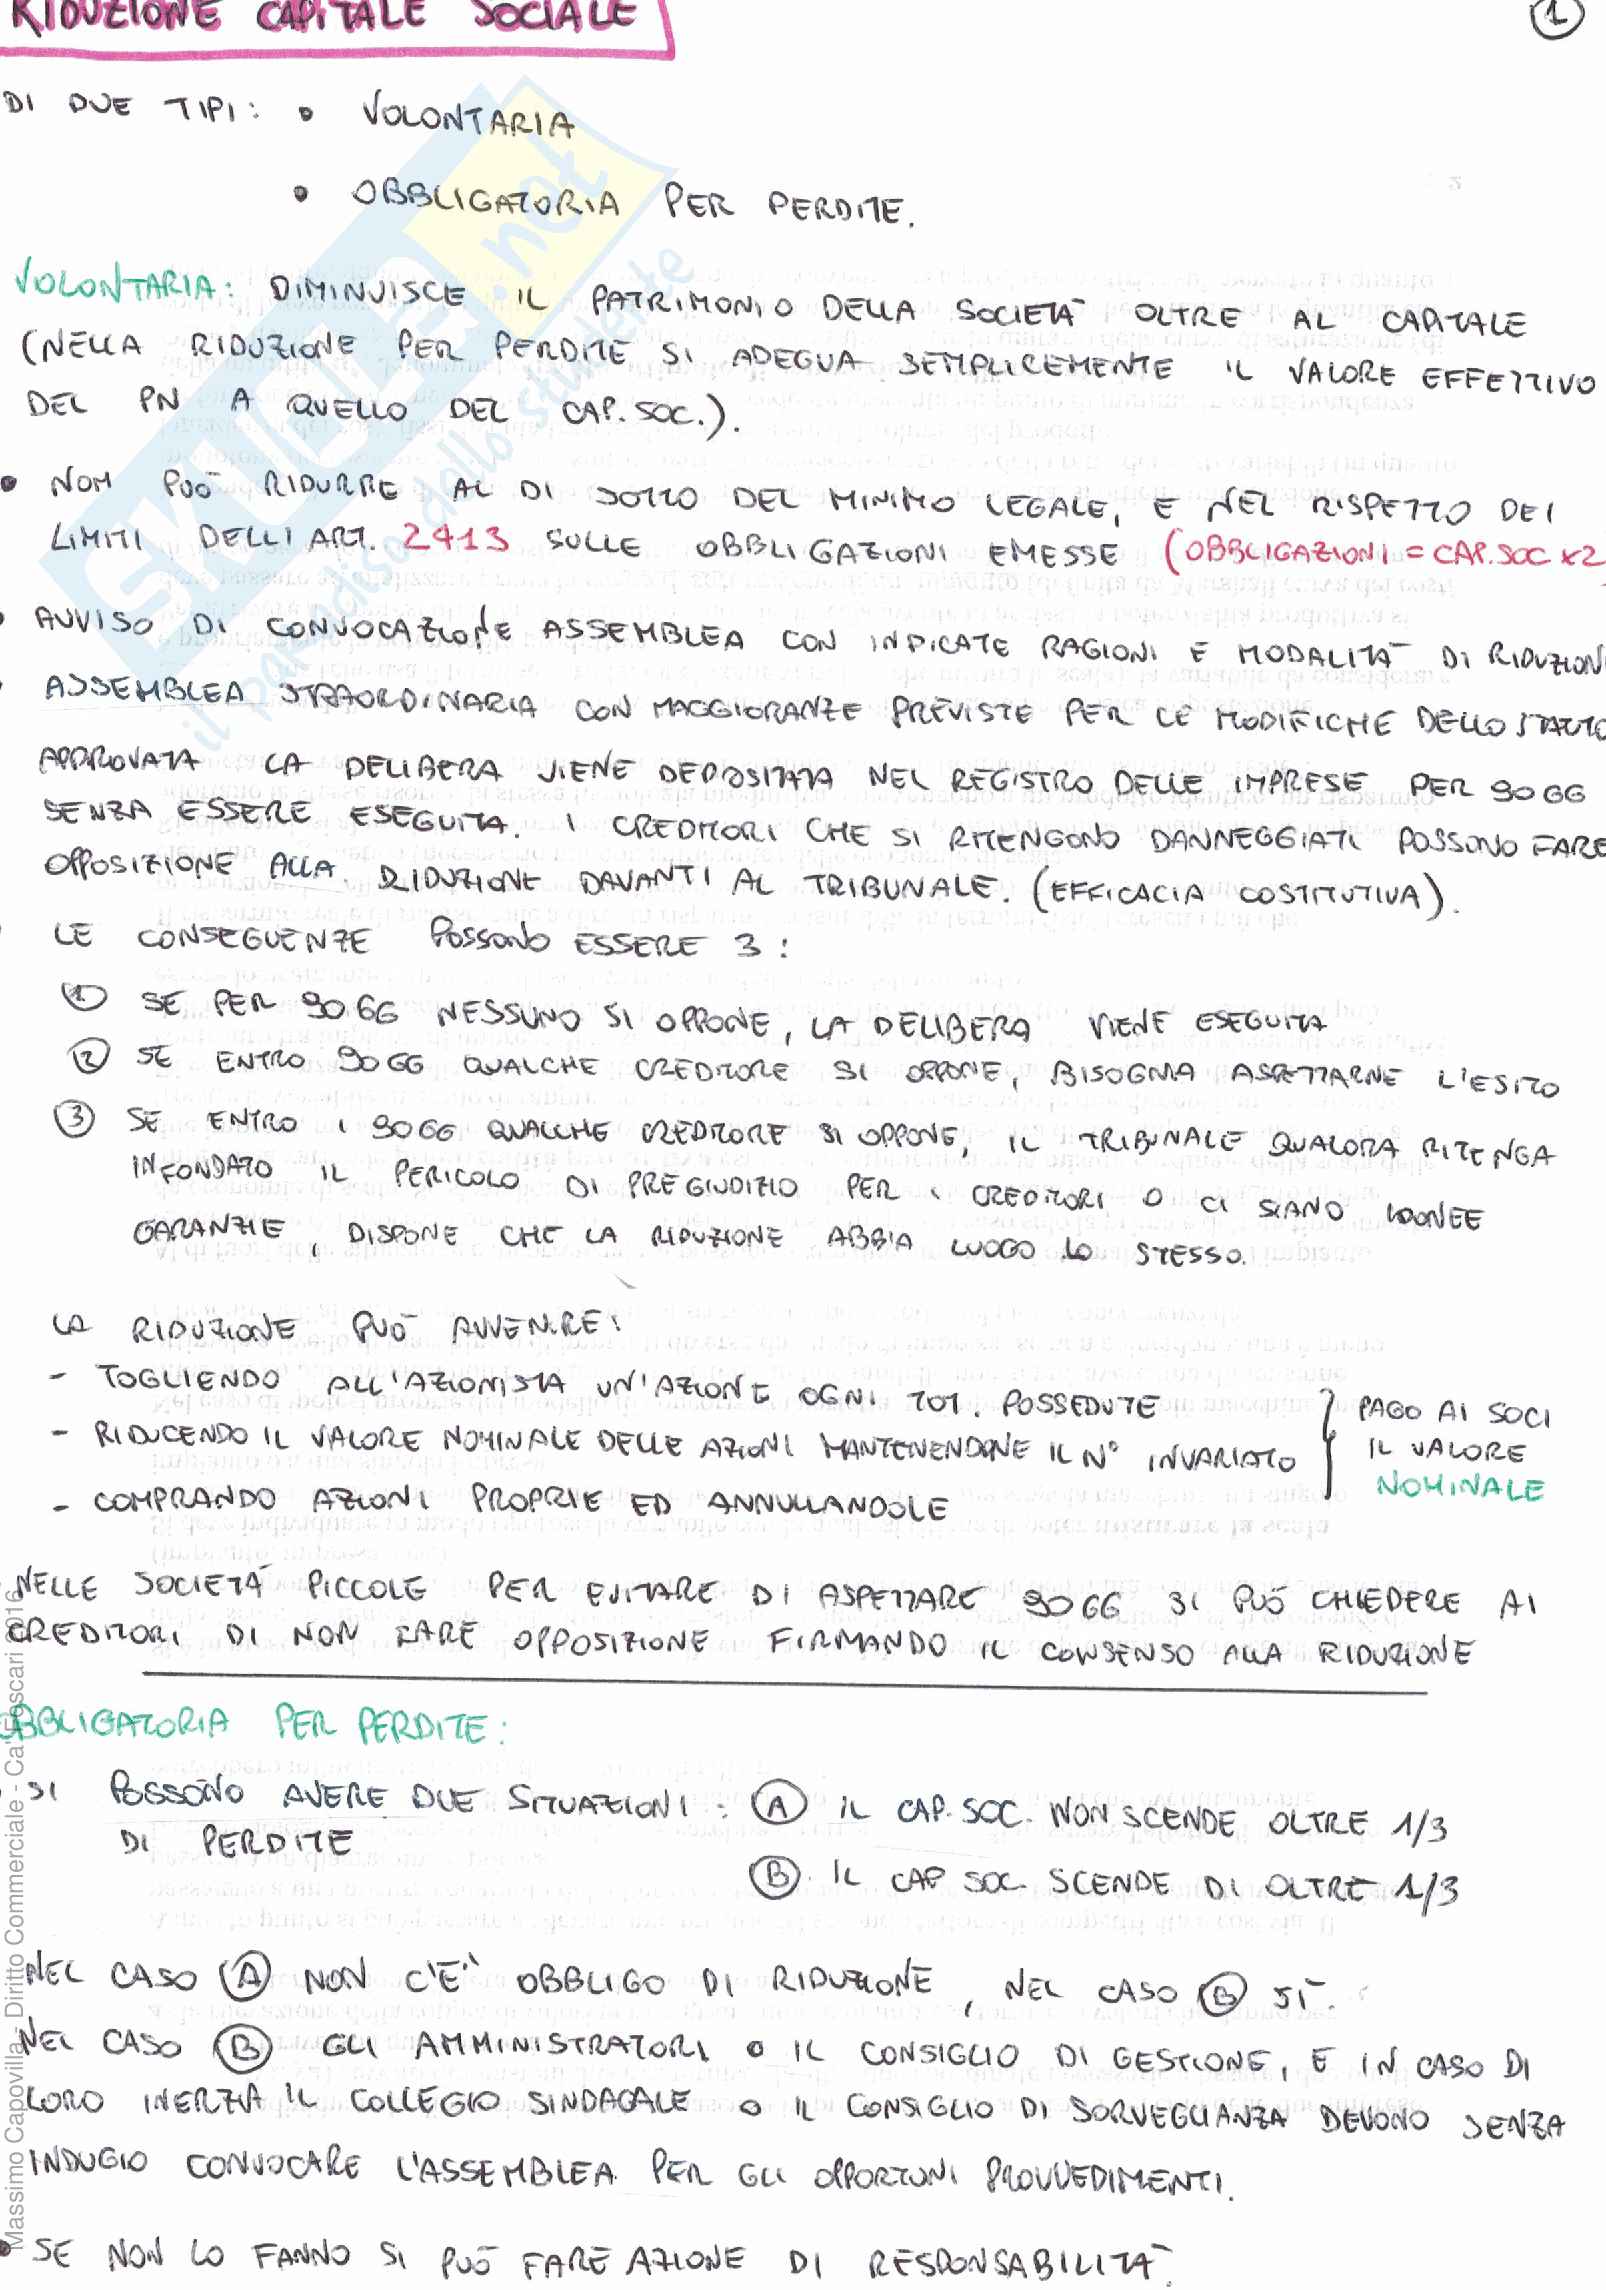 RIDUZIONE CAPITALE SOCIALE
1
DI DUE TIPI: • VOLONTARIA
• OBBLIGATORIA PER PERDITE.
VOLONTARIA: DIMINUISCE IL PATRIMONIO DELLA SOCIETÀ OLTRE AL CAPITALE
(NELLA RIDUZIONE PER PERDITE SI ADEGUA SEMPLICEMENTE IL VALORE EFFETTIVO
DEL PN A QUELLO DEL CAP. SOC.).
• NON PUÒ RIDURRE AL DI SOTTO DEL MINIMO LEGALE, E NEL RISPETTO DEI
LIMITI DELL'ART. 2413 SULLE OBBLIGAZIONI EMESSE (OBBLIGAZIONI = CAP. SOC x2)
• AVVISO DI CONVOCAZIONE ASSEMBLEA CON INDICATE RAGIONI E MODALITÀ DI RIDUZION
• ASSEMBLEA STRAORDINARIA CON MAGGIORANZE PREVISTE PER LE MODIFICHE DELLO STATUTO
APPROVATA LA DELIBERA VIENE DEPOSITATA NEL REGISTRO DELLE IMPRESE PER 90 GG
SENZA ESSERE ESEGUITA. I CREDITORI CHE SI RITENGONO DANNEGGIATI POSSONO FARE
OPPOSIZIONE ALLA RIDUZIONE DAVANTI AL TRIBUNALE. (EFFICACIA COSTITUTIVA).
LE CONSEGUENZE POSSONO ESSERE 3:
1 SE PER 90 GG NESSUNO SI OPPONE, LA DELIBERA VIENE ESEGUITA
2 SE ENTRO 90 GG QUALCHE CREDITORE SI OPPONE, BISOGNA ASPETTARNE L'ESITO
3 SE ENTRO I 90 GG QUALCHE CREDITORE SI OPPONE, IL TRIBUNALE QUALORA RITENGA
INFONDATO IL PERICOLO DI PREGIUDIZIO PER I CREDITORI O CI SIANO IDONEE
GARANZIE, DISPONE CHE LA RIDUZIONE ABBIA LUOGO LO STESSO.
LA RIDUZIONE PUÒ AVVENIRE:
- TOGLIENDO ALL'AZIONISTA UN'AZIONE OGNI TOT. POSSEDUTE
- RIDUCENDO IL VALORE NOMINALE DELLE AZIONI MANTENENDONE IL N° INVARIATO
- COMPRANDO AZIONI PROPRIE ED ANNULLANDOLE
PAGO AI SOCI
IL VALORE
NOMINALE
NELLE SOCIETÀ PICCOLE PER EVITARE DI ASPETTARE 90 GG SI PUÒ CHIEDERE AI
CREDITORI DI NON FARE OPPOSIZIONE FIRMANDO IL CONSENSO ALLA RIDUZIONE
OBBLIGATORIA PER PERDITE:
SI POSSONO AVERE DUE SITUAZIONI: A IL CAP. SOC. NON SCENDE OLTRE 1/3
DI PERDITE
B IL CAP SOC. SCENDE DI OLTRE 1/3
NEL CASO A NON C'È OBBLIGO DI RIDUZIONE, NEL CASO B SÌ.
NEL CASO B GLI AMMINISTRATORI O IL CONSIGLIO DI GESTIONE, E IN CASO DI
LORO INERZIA IL COLLEGIO SINDACALE O IL CONSIGLIO DI SORVEGLIANZA DEVONO SENZA
INDUGIO CONVOCARE L'ASSEMBLEA PER GLI OPPORTUNI PROVVEDIMENTI.
• SE NON LO FANNO SI PUÒ FARE AZIONE DI RESPONSABILITÀ.
SKUOLA.net
il paradiso dello studente
Massimo Capovilla - Diritto Commerciale - Ca' Foscari 2016